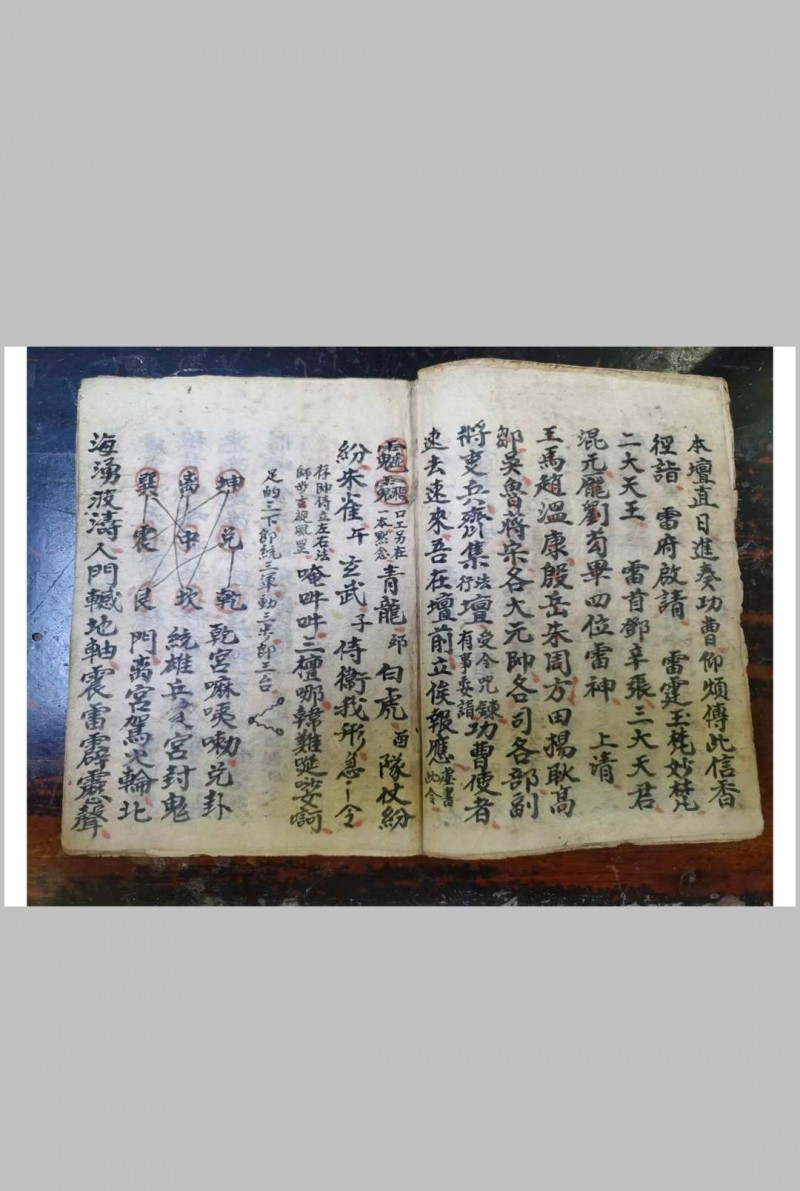 本壇直日進奏功曹仰煩傳此信香
徑詣 雷府啟請 雷霆玉梵妙梵
二大天王 雷首鄧辛張三大天君
混元龐劉苟畢四位雷神 上清
王馬趙溫康殷岳朱周方田楊耿高
鄒吳魯蔣宋各大元帥各司各部副
將吏兵齊集法行壇受令咒鍊有事委請功曹使者
速去速來吾在壇前立俟報應虛書此令
口工另在一本默念 青龍卯白虎酉隊仗紛
紛朱雀午玄武子侍衛我形急〻令
存帥侍立左右法師步吉旋風罡 唵吽吽三檀哪韓難延娑訶
足的三下部統三軍動三步師三台
坤 兌 乾 乾宮嘛咦嘞兌卦
离 中 坎 統雄兵艮宮封鬼
巽 震 艮 門离宮駕火輪北
海湧波濤人門轗地軸震雷霹靂聲